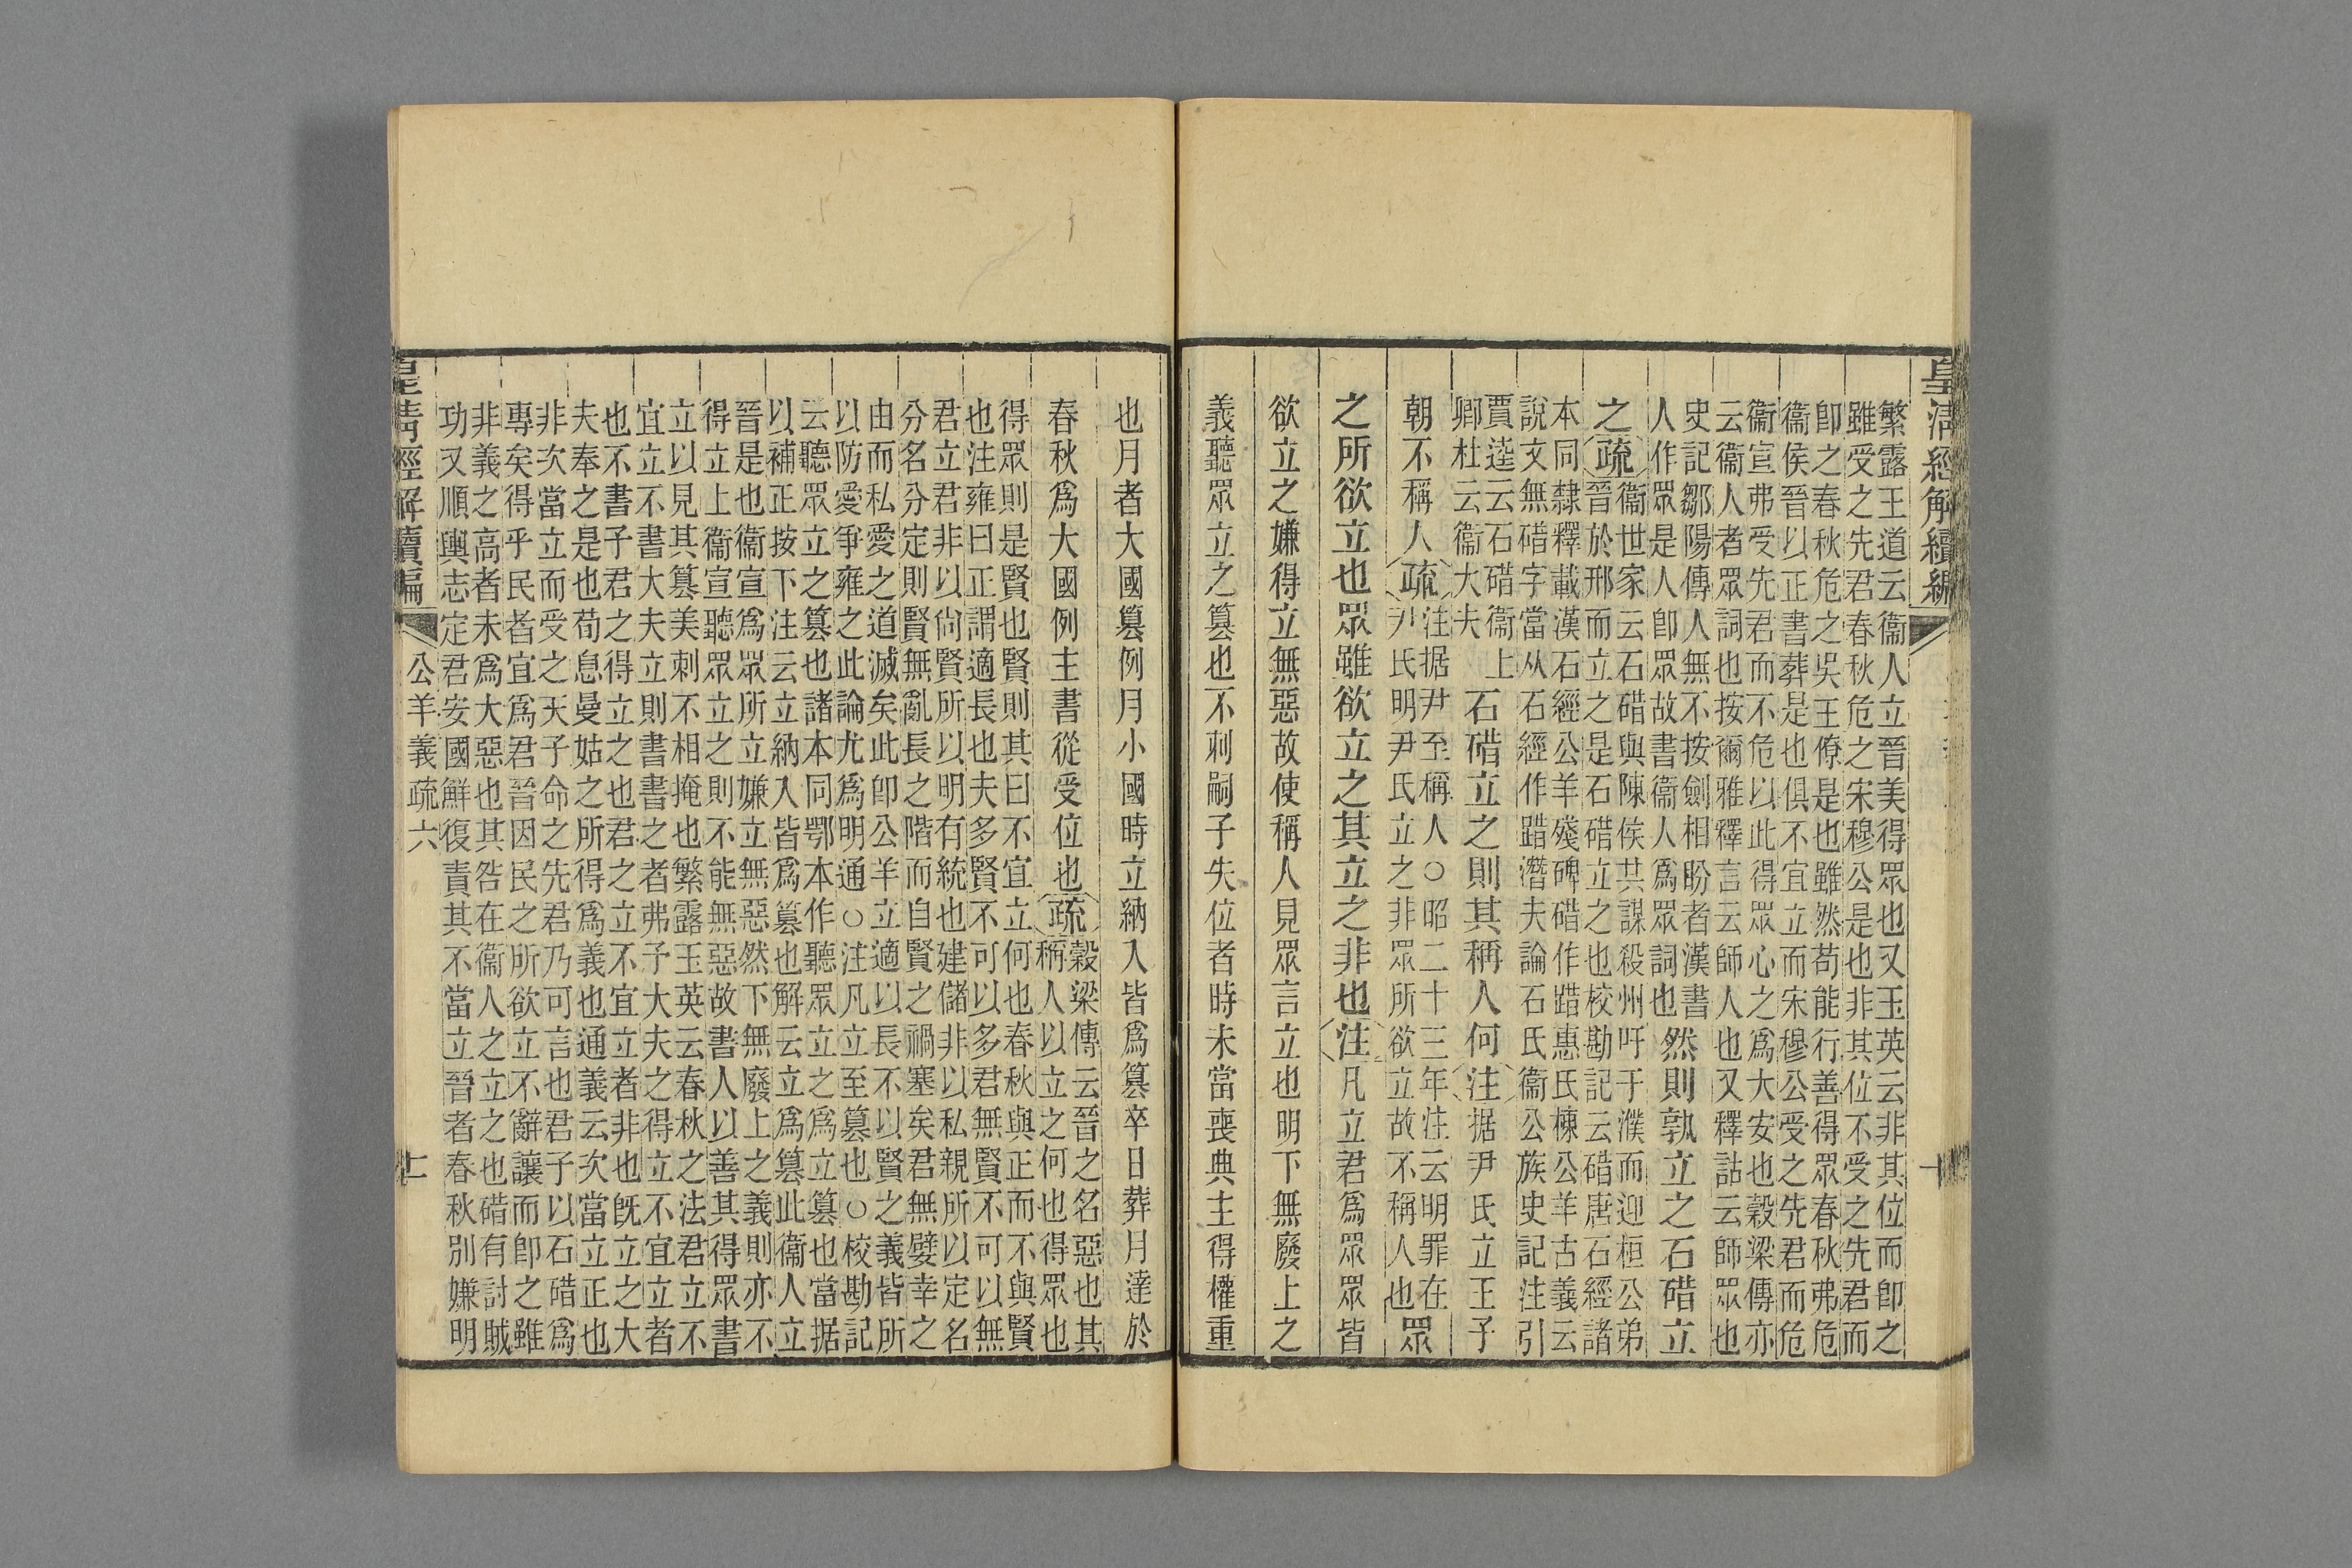 皇淸經解續編
繁露王道云衞人立晉美得眾也又玉英云非其位而卽之
雖受之先君春秋危之宋穆公是也非其位不受之先君而
卽之春秋危之吳王僚是也雖然苟能行善得眾春秋弗危
衞侯晉以正書葬是也俱不宜立而宋穆公受之先君而危
衞宣弗受先君而不危以此得眾心之爲大安也穀梁傳亦
云衞人者眾詞也按爾雅釋言云師人也又釋詁云師眾也
史記鄒陽傳人無不按劍相盼者漢書
人作眾是人卽眾故書衞人爲眾詞也
然則孰立之石碏立
之
疏
衞世家云石碏與陳侯共謀殺州吁于濮而迎桓公弟
晉於邢而立之是石碏立之也校勘記云碏唐石經諸
本同隸釋載漢石經公羊殘碑碏作踖惠氏棟公羊古義云
說文無碏字當从石經作踖潛夫論石氏衞公族史記注引
賈逵云石碏衞上
卿杜云衞大夫
石碏立之則其稱人何
注
据尹氏立王子
朝不稱人
疏
注据尹至稱人○昭二十三年注云明罪在
尹氏明尹氏立之非眾所欲立故不稱人也
眾
之所欲立也眾雖欲立之其立之非也
注
凡立君爲眾眾皆
欲立之嫌得立無惡故使稱人見眾言立也明下無廢上之
義聽眾立之篡也不刺嗣子失位者時未當喪典主得權重
十
也月者大國篡例月小國時立納入皆爲篡卒日葬月達於
春秋爲大國例主書從受位也
疏
穀梁傳云晉之名惡也其
稱人以立之何也得眾也
得眾則是賢也賢則其曰不宜立何也春秋與正而不與賢
也注雍曰正謂適長也夫多賢不可以多君無賢不可以無
君立君非以尙賢所以明有統也建儲非以私親所以定名
分名分定則賢無亂長之階而自賢之禍塞矣君無嬖幸之
由而私愛之道滅矣此卽公羊立適以長不以賢之義皆所
以防愛爭雍之此論尤爲明通○注凡立至篡也○校勘記
云聽眾立之篡也諸本同鄂本作聽眾立之爲立篡也當据
以補正按下注云立納入皆爲篡也解云立爲篡此衞人立
晉是也衞宣爲眾所立嫌立無惡然下無廢上之義則亦不
得立上衞宣聽眾立之則不能無惡故書人以善其得眾書
立以見其篡美刺不相掩也繁露玉英云春秋之法君立不
宜立不書大夫立則書書之者弗予大夫之得立不宜立者
也不書子君之得立之也君之立不宜立者非也旣立之大
夫奉之是也荀息曼姑之所得爲義也通義云次當立正也
非次當立而受之天子命之先君乃可言也君子以石碏爲
專矣得乎民者宜爲君晉因民之所欲立不辭讓而卽之雖
非義之高者未爲大惡也其咎在衞人之立之也碏有討賊
功又順輿志定君安國鮮復責其不當立晉者春秋別嫌明
皇淸經解續編
公羊義疏六